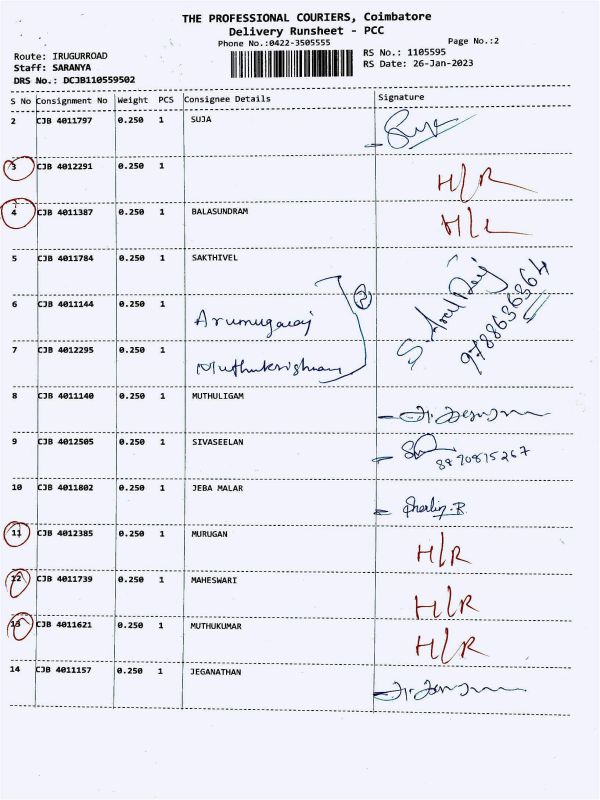 THE PROFESSIONAL COURIERS, Coimbatore
Delivery Runsheet - PCC
Phone No.:0422-3505555
Page No.:2
Route: IRUGURROAD
RS No.: 1105595
Staff: SARANYA
RS Date: 26-Jan-2023
DRS No.: DCJB110559502
S No Consignment No Weight PCS Consignee Details Signature
2 CJB 4011797 0.250 1 SUJA
3 CJB 4012291 0.250 1 H/R
4 CJB 4011387 0.250 1 BALASUNDRAM H/L
5 CJB 4011784 0.250 1 SAKTHIVEL
6 CJB 4011144 0.250 1 Arumugaraj
7 CJB 4012295 0.250 1 Muthukrishnan
8 CJB 4011140 0.250 1 MUTHULIGAM
9 CJB 4012505 0.250 1 SIVASEELAN
10 CJB 4011802 0.250 1 JEBA MALAR
11 CJB 4012385 0.250 1 MURUGAN H/R
12 CJB 4011739 0.250 1 MAHESWARI H/R
13 CJB 4011621 0.250 1 MUTHUKUMAR H/R
14 CJB 4011157 0.250 1 JEGANATHAN